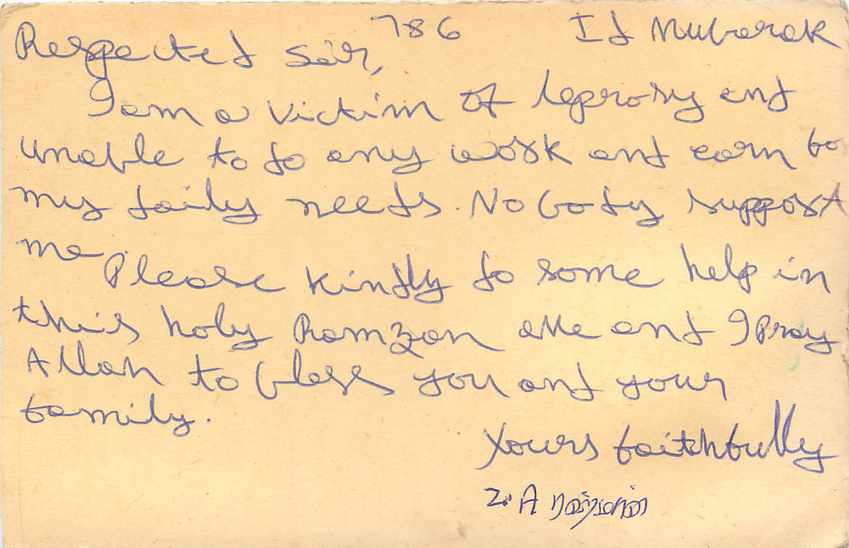 786 Id Mubarak
Respected Sir,
I am a victim of leprosy and
unable to do any work and earn to
my daily needs. No body support
me
Please kindly do some help in
this holy Ramzan and I Pray
Allah to bless you and your
family.
Yours faithfully
Z. A